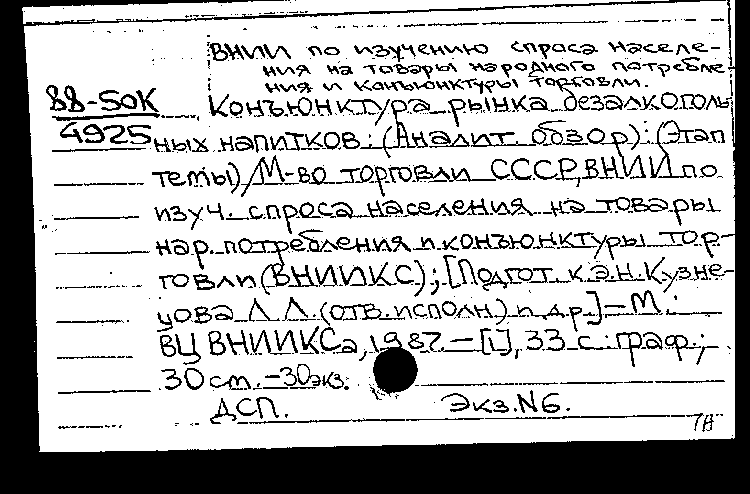 ВНИИ по изучению спроса населе-
ния на товары народного потребле
ния и конъюнктуры торговли.
88-5ОК
4925
Конъюнктура рынка безалкоголь
ных напитков: (Аналит. обзор): (Этап
темы) / М-во торговли СССР, ВНИИ по
изуч. спроса населения на товары
нар. потребления и конъюнктуры тор-
говли (ВНИИКС); [Подгот. к.э.н. Кузне-
цова Л.Л. (отв. исполн.) и др.] – М.:
ВЦ ВНИИКСа, 1987. – [1], 33 с.: граф.;
30 см. – 30 экз.
ДСП. Экз. N6.